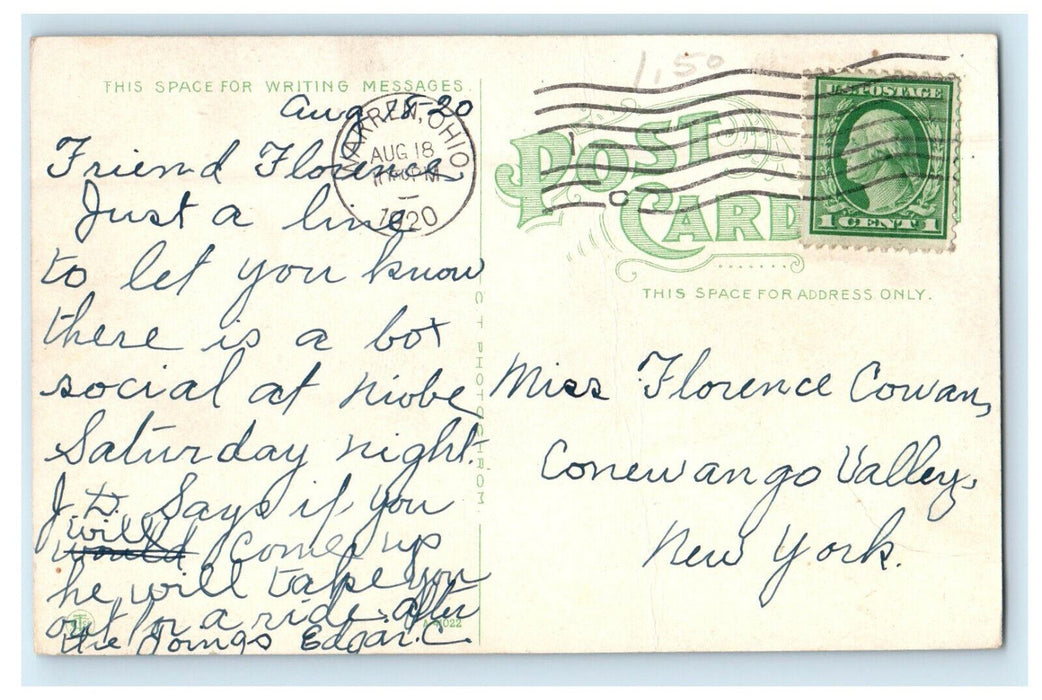 1.50
THIS SPACE FOR WRITING MESSAGES.
Aug 18-20
Friend Florence,
Just a line
to let you know
there is a box
social at Niobe
Saturday night.
J.D. Says if you
will
would come up
he will take you
out for a ride after
the Doings Edgar.C.
WARREN, OHIO
AUG 18
PM
1920
POST CARD
U.S. POSTAGE
1 CENT 1
THIS SPACE FOR ADDRESS ONLY.
Miss Florence Cowan,
Conewango Valley,
New York.
C T PHOTOCHROM